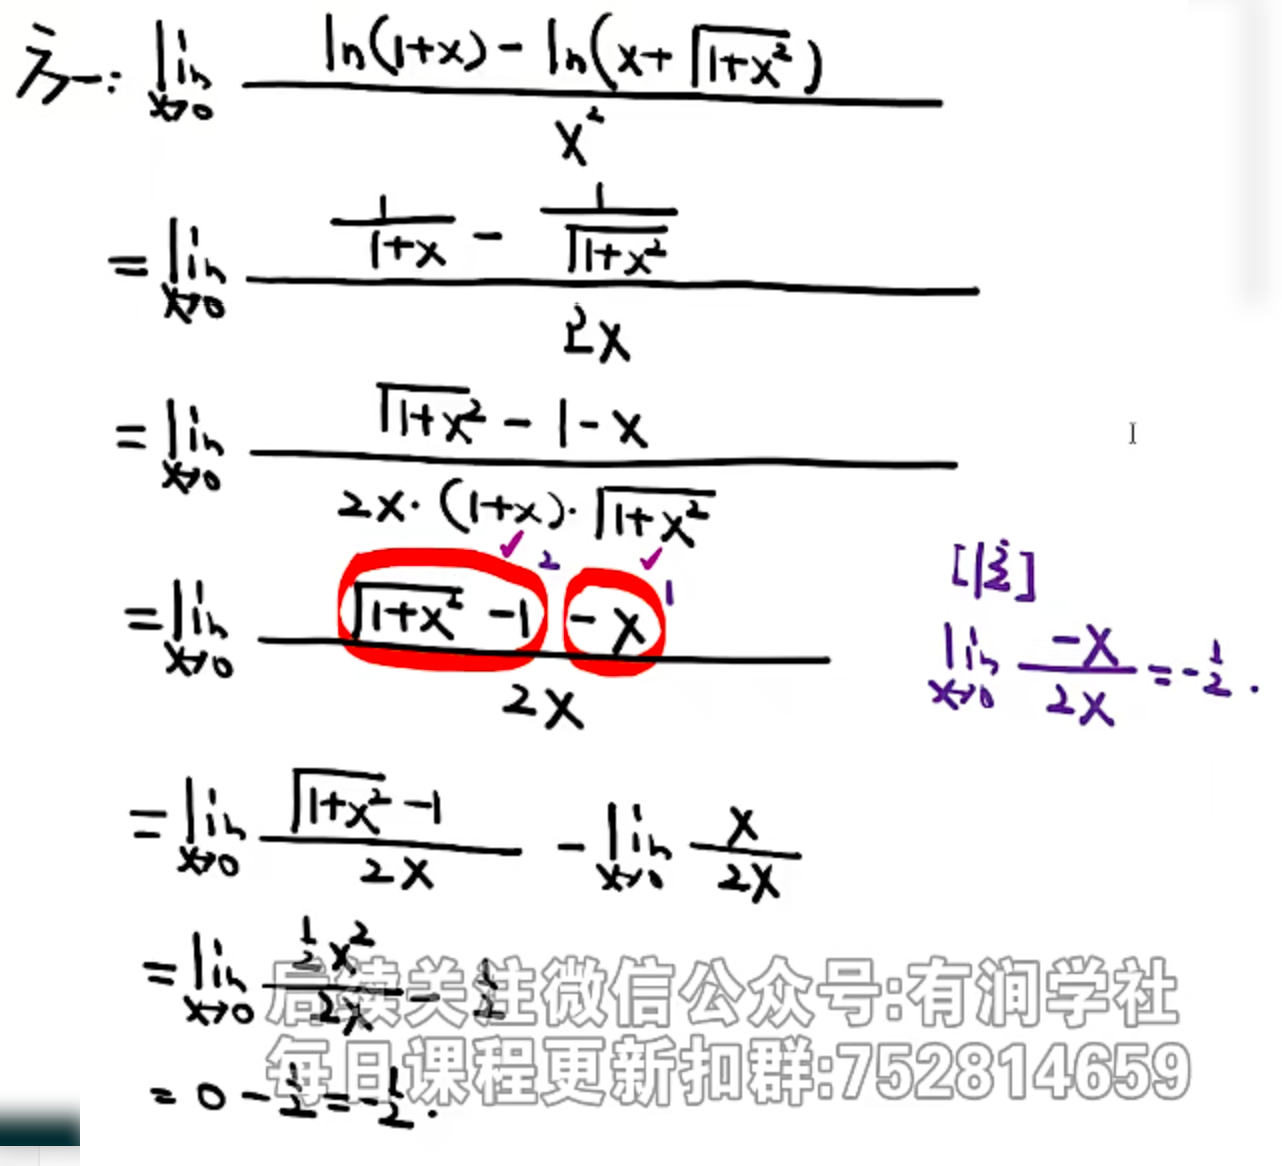 方一: lim x→0 (ln(1+x) - ln(x+√(1+x²))) / x²
= lim x→0 (1/(1+x) - 1/√(1+x²)) / 2x
= lim x→0 (√(1+x²) - 1 - x) / (2x·(1+x)·√(1+x²))
✓ 2 ✓ 1
= lim x→0 (√(1+x²) - 1 - x) / 2x
[注]
lim x→0 -x / 2x = -1/2.
= lim x→0 (√(1+x²) - 1) / 2x - lim x→0 x / 2x
= lim x→0 (1/2 x²) / 2x - 1/2
后续关注微信公众号:有润学社
= 0 - 1/2 = -1/2.
每日课程更新扣群:752814659